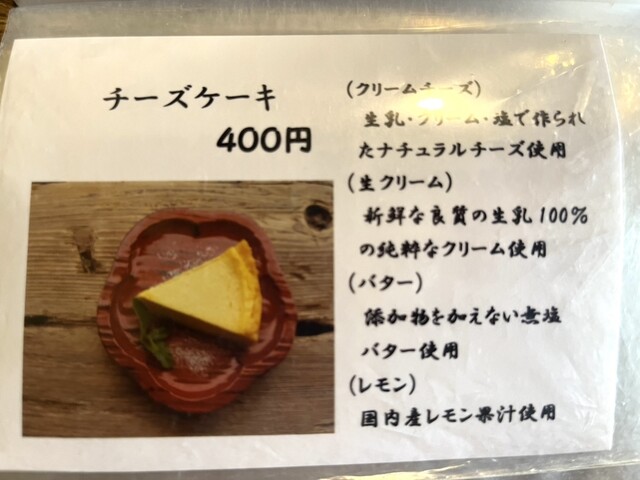 チーズケーキ
400円
(クリームチーズ)
生乳・クリーム・塩で作られ
たナチュラルチーズ使用
(生クリーム)
新鮮な良質の生乳100%
の純粋なクリーム使用
(バター)
添加物を加えない無塩
バター使用
(レモン)
国内産レモン果汁使用